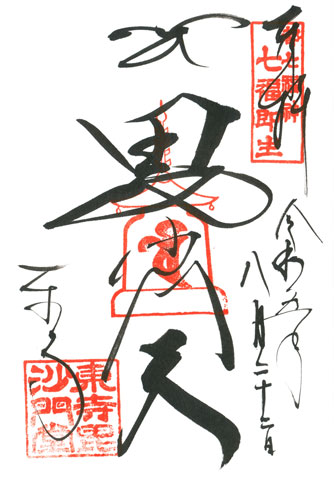 奉拝
七福即生
令和五年
八月二十二日
毘沙門天
東寺
東寺
沙門堂